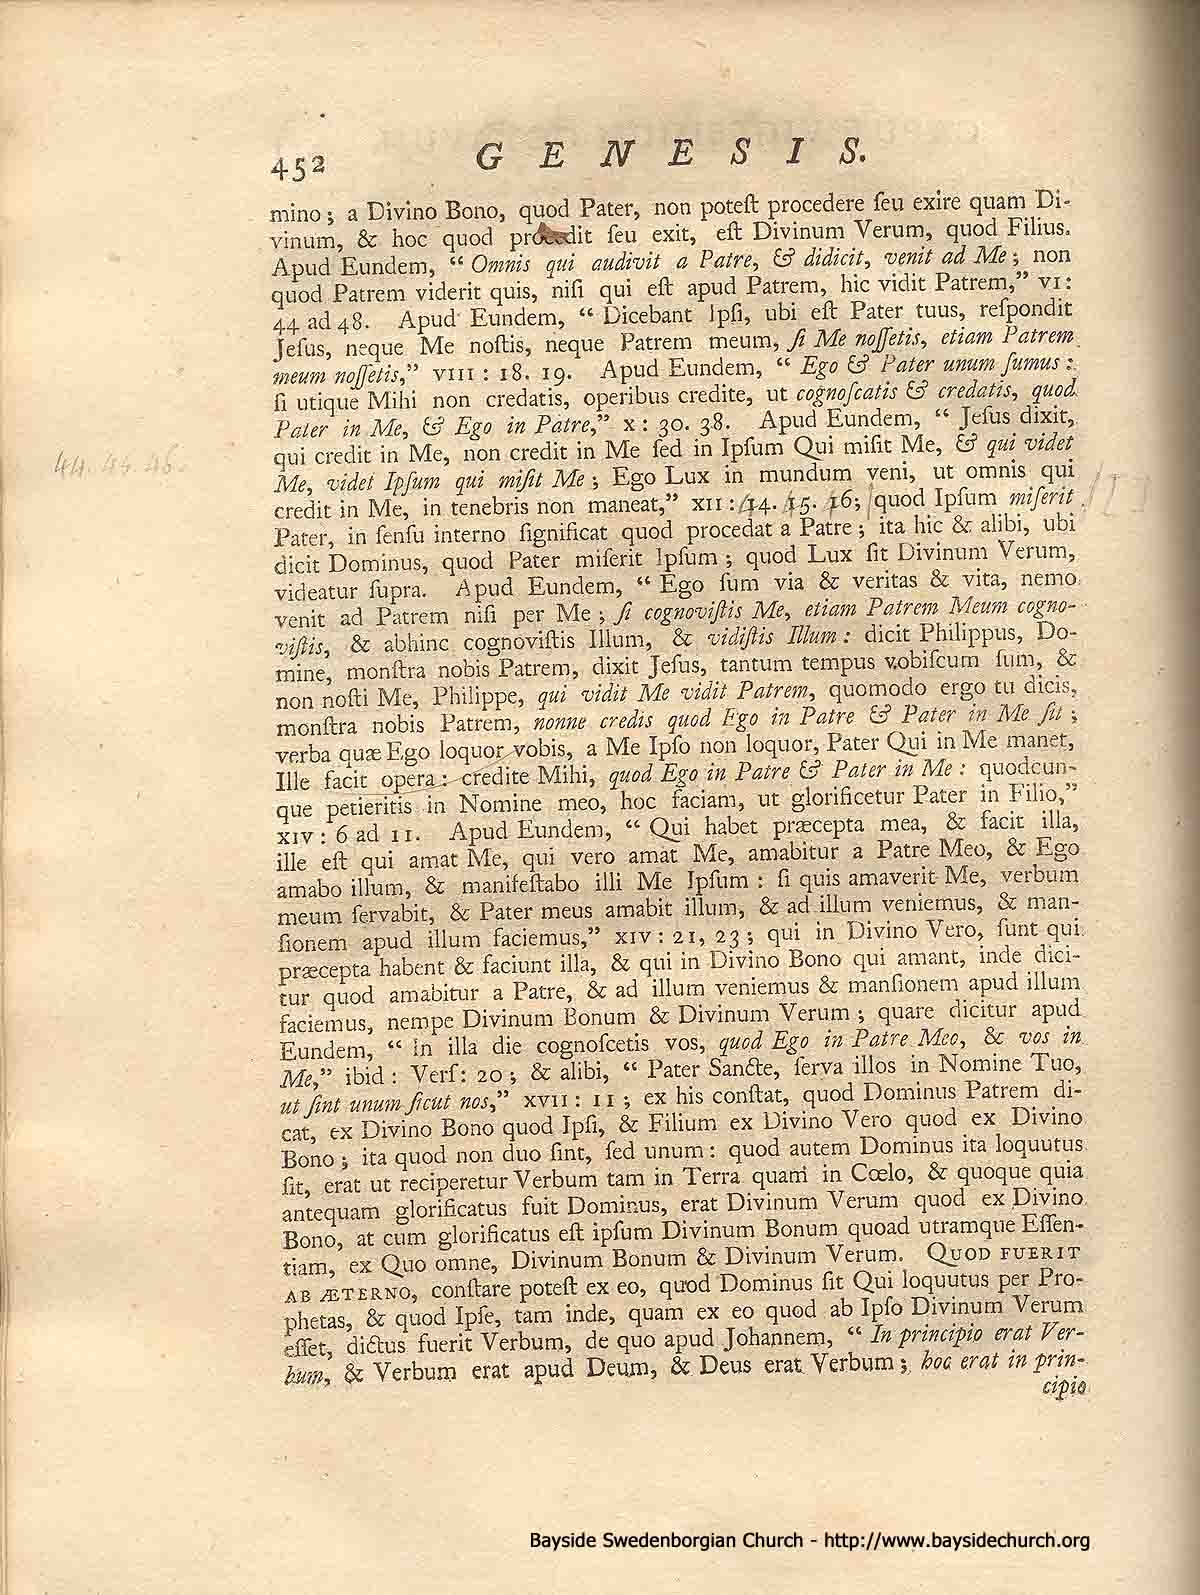 452 GENESIS.
mino; a Divino Bono, quod Pater, non poteſt procedere ſeu exire quam Di-
vinum, & hoc quod procedit ſeu exit, eſt Divinum Verum, quod Filius.
Apud Eundem, “ Omnis qui audivit a Patre, & didicit, venit ad Me; non
quod Patrem viderit quis, niſi qui eſt apud Patrem, hic vidit Patrem,” VI:
44 ad 48. Apud Eundem, “ Dicebant Ipſi, ubi eſt Pater tuus, reſpondit
Jeſus, neque Me noſtis, neque Patrem meum, ſi Me noſſetis, etiam Patrem
meum noſſetis,” VIII: 18. 19. Apud Eundem, “ Ego & Pater unum ſumus:
ſi utique Mihi non credatis, operibus credite, ut cognoſcatis & credatis, quod
Pater in Me, & Ego in Patre,” X: 30. 38. Apud Eundem, “ Jeſus dixit,
qui credit in Me, non credit in Me ſed in Ipſum Qui miſit Me, & qui videt
44. 45. 46.
Me, videt Ipſum qui miſit Me; Ego Lux in mundum veni, ut omnis qui
credit in Me, in tenebris non maneat,” XII: 14. 15. 16; quod Ipſum miſerit
Pater, in ſenſu interno ſignificat quod procedat a Patre; ita hic & alibi, ubi
dicit Dominus, quod Pater miſerit Ipſum; quod Lux ſit Divinum Verum,
videatur ſupra. Apud Eundem, “ Ego ſum via & veritas & vita, nemo
venit ad Patrem niſi per Me; ſi cognoviſtis Me, etiam Patrem Meum cogno-
viſtis, & abhinc cognoviſtis Illum, & vidiſtis Illum: dicit Philippus, Do-
mine, monſtra nobis Patrem, dixit Jeſus, tantum tempus vobiſcum ſum, &
non noſti Me, Philippe, qui vidit Me vidit Patrem, quomodo ergo tu dicis,
monſtra nobis Patrem, nonne credis quod Ego in Patre & Pater in Me ſit;
verba quæ Ego loquor vobis, a Me Ipſo non loquor, Pater Qui in Me manet,
Ille facit opera: credite Mihi, quod Ego in Patre & Pater in Me: quodcun-
que petieritis in Nomine meo, hoc faciam, ut glorificetur Pater in Filio,”
XIV: 6 ad 11. Apud Eundem, “ Qui habet præcepta mea, & facit illa,
ille eſt qui amat Me, qui vero amat Me, amabitur a Patre Meo, & Ego
amabo illum, & manifeſtabo illi Me Ipſum: ſi quis amaverit Me, verbum
meum ſervabit, & Pater meus amabit illum, & ad illum veniemus, & man-
ſionem apud illum faciemus,” XIV: 21, 23; qui in Divino Vero, ſunt qui
præcepta habent & faciunt illa, & qui in Divino Bono qui amant, inde dici-
tur quod amabitur a Patre, & ad illum veniemus & manſionem apud illum
faciemus, nempe Divinum Bonum & Divinum Verum; quare dicitur apud
Eundem, “ In illa die cognoſcetis vos, quod Ego in Patre Meo, & vos in
Me,” ibid: Verſ: 20; & alibi, “ Pater Sancte, ſerva illos in Nomine Tuo,
ut ſint unum ſicut nos,” XVII: 11; ex his conſtat, quod Dominus Patrem di-
cat, ex Divino Bono quod Ipſi, & Filium ex Divino Vero quod ex Divino
Bono; ita quod non duo ſint, ſed unum: quod autem Dominus ita loquutus
ſit, erat ut reciperetur Verbum tam in Terra quam in Cœlo, & quoque quia
antequam glorificatus fuit Dominus, erat Divinum Verum quod ex Divino
Bono, at cum glorificatus eſt ipſum Divinum Bonum quoad utramque Eſſen-
tiam, ex Quo omne, Divinum Bonum & Divinum Verum. QUOD FUERIT
AB ÆTERNO, conſtare poteſt ex eo, quod Dominus ſit Qui loquutus per Pro-
phetas, & quod Ipſe, tam inde, quam ex eo quod ab Ipſo Divinum Verum
eſſet, dictus fuerit Verbum, de quo apud Johannem, “ In principio erat Ver-
bum, & Verbum erat apud Deum, & Deus erat Verbum; hoc erat in prin-
cipio
Bayside Swedenborgian Church - http://www.baysidechurch.org